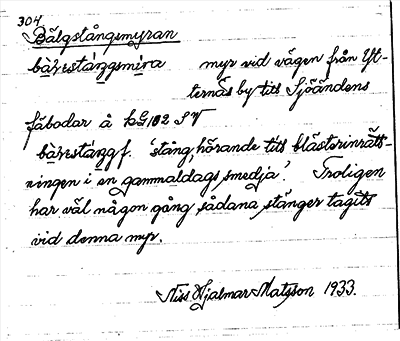 304
Bälgstångsmyran
bäɫɡstáŋgsmira myr vid vägen från Yt-
ternäs by till Sjöändens
fäbodar å kG 182 SV
bäɫɡstáŋg f. 'stång, hörande till blästerinrätt-
ningen i en gammaldags smedja'. Troligen
har väl någon gång sådana stänger tagits
vid denna myr.
Niss Hjalmar Matsson 1933.